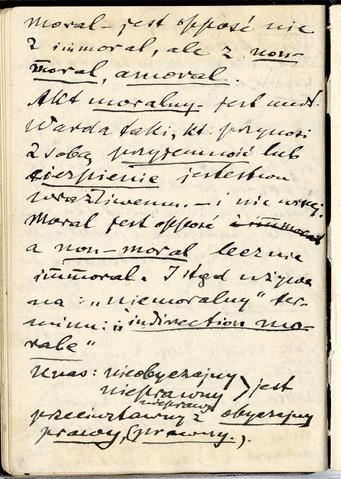 Moral – jest oppość nie
z immoral, ale z non-
moral, amoral.
Akt moralny – jest wedł.
Warda taki, kt. przynosi
z sobą przyjemność lub
cierpienie jestestwu
wrażliwemu. – i nic więcej.
Moral jest oppość z immoral
a non-moral lecz nie
immoral. I stąd używa
na: „niemoralny" ter-
minu: „indirection mo-
rale"
U nas: nieobyczajny
nieprawny > jest
nieprawy
przeciwstawny z obyczajny
prawy, (prawny.).